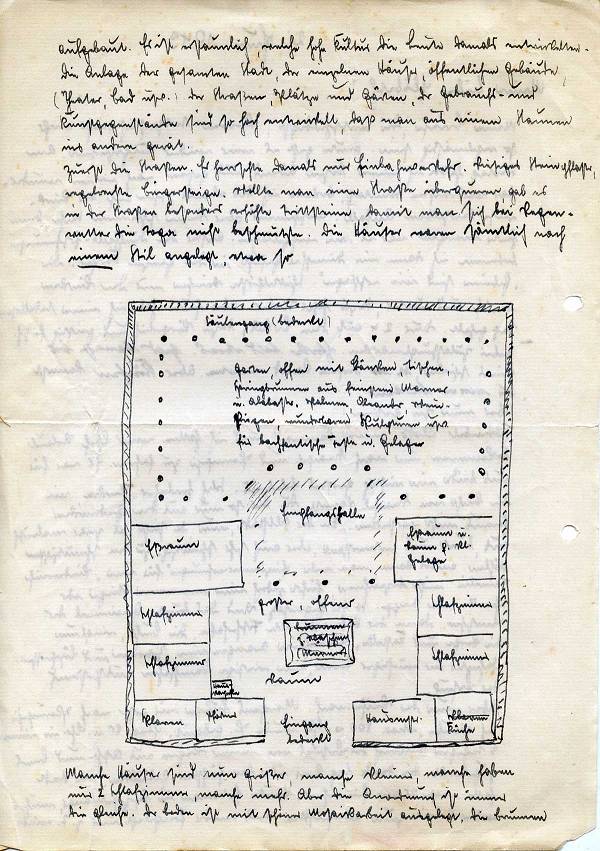 aufgebaut. Es ist erstaunlich, welche hohe Kultur die Leute damals entwickelten.
Die Anlage der gesamten Stadt, der einzelnen Häuser, öffentlichen Gebäude,
(Theater, Bad usw.) der Strassen, Plätze und Gärten, der Gebrauchs- und
Kunstgegenstände sind so hoch entwickelt, daß man aus einem Staunen
ins andere gerät.
Zuerst die Strassen. Es herrschte damals nur Einbahnverkehr. Steinpflaster,
Bürgersteige. Wollte man eine Straße überqueren gab es
in der Strassen besonders erhöhte Trittsteine damit man sich bei Regen-
wetter die Toga nicht beschmutzte. Die Häuser waren sämtlich nach
einem Stil angelegt, etwa so
Säulengang (bedeckt)
Garten, offen mit Bänken, Tischen,
Springbrunnen aus feinstem Marmor
u. Alabaster, Palmen, Oleander,
wunderbaren Skulpturen usw
für bachantische Feste u. Gelage
Empfangshalle
Eßraum
Eßraum u.
Raum f. kl.
Gelage
Schlafzimmer
großer, offener
Schlafzimmer
Brunnen
(Marmor)
Schlafzimmer
Schlafzimmer
Raum
Sklaven
Pförtner
Eingang
bedeckt
Hausmstr.
Küche
Manche Häuser sind nun größer, manche kleiner, manche haben
nur 2 Schlafzimmer, manche mehr. Aber die Anordnung ist immer
die gleiche. Der Boden ist mit schöner Mosaikarbeit ausgelegt, die Brunnen